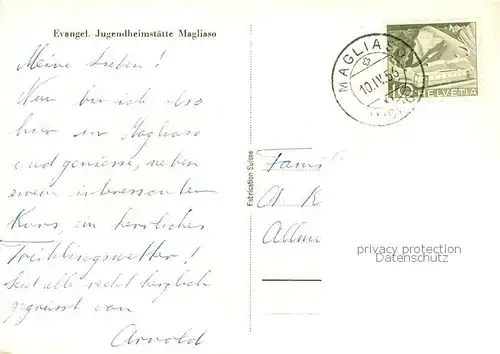 Evangel. Jugendheimstätte Magliaso
Meine Lieben!
Nun bin ich also
hier in Magliaso
und geniesse, neben
einem interessanten
Kurs, ein herrliches
Frühlingswetter!
Seid alle recht herzlich
gegrüsst von
Arnold
MAGLIASO
10.IV.53
HELVETIA
Fabrication Suisse
Fami
A K
Allm
privacy protection
Datenschutz